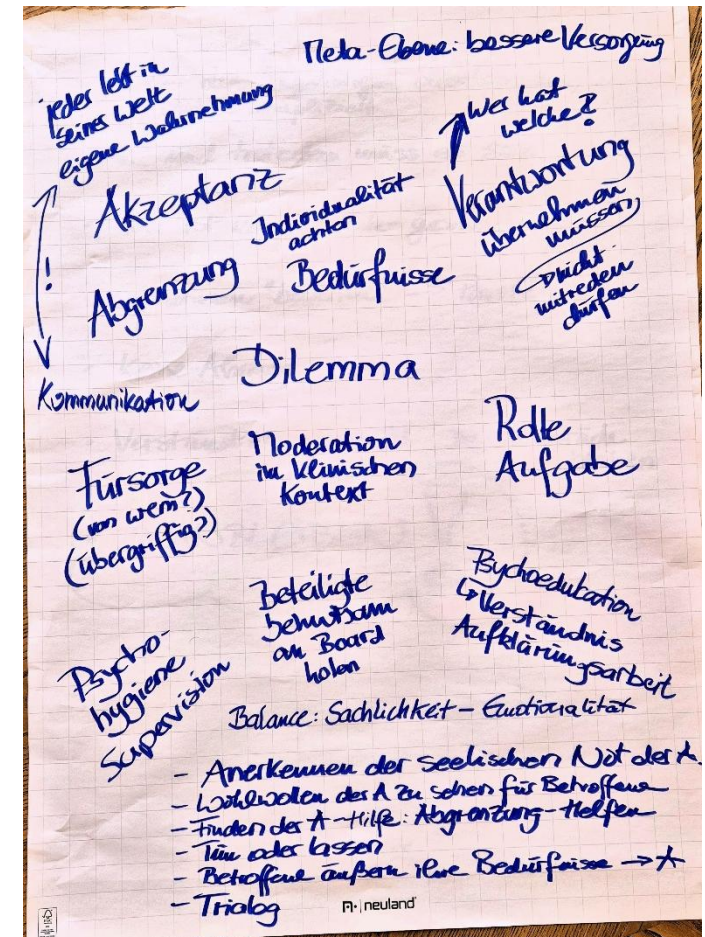 Meta-Ebene: bessere Versorgung
jeder lebt in
seiner Welt
eigene Wahrnehmung
Wer hat
welche?
Akzeptanz
Individualität
achten
Verantwortung
übernehmen
müssen,
nicht
mitreden
dürfen
!
Abgrenzung
Bedürfnisse
Dilemma
Kommunikation
Fürsorge
(von wem?)
(übergriffig?)
Moderation
im klinischen
Kontext
Rolle
Aufgabe
Psycho-
hygiene
Supervision
Beteiligte
behutsam
an Board
holen
Psychoedukation
↳ Verständnis
Aufklärungsarbeit
Balance: Sachlichkeit – Emotionalität
- Anerkennen der seelischen Not der A.
- Wohlwollen der A zu sehen für Betroffene
- Finden der A-Hilfe: Abgrenzung - Helfen
- Tun oder lassen
- Betroffene äußern ihre Bedürfnisse → A
- Trialog
neuland